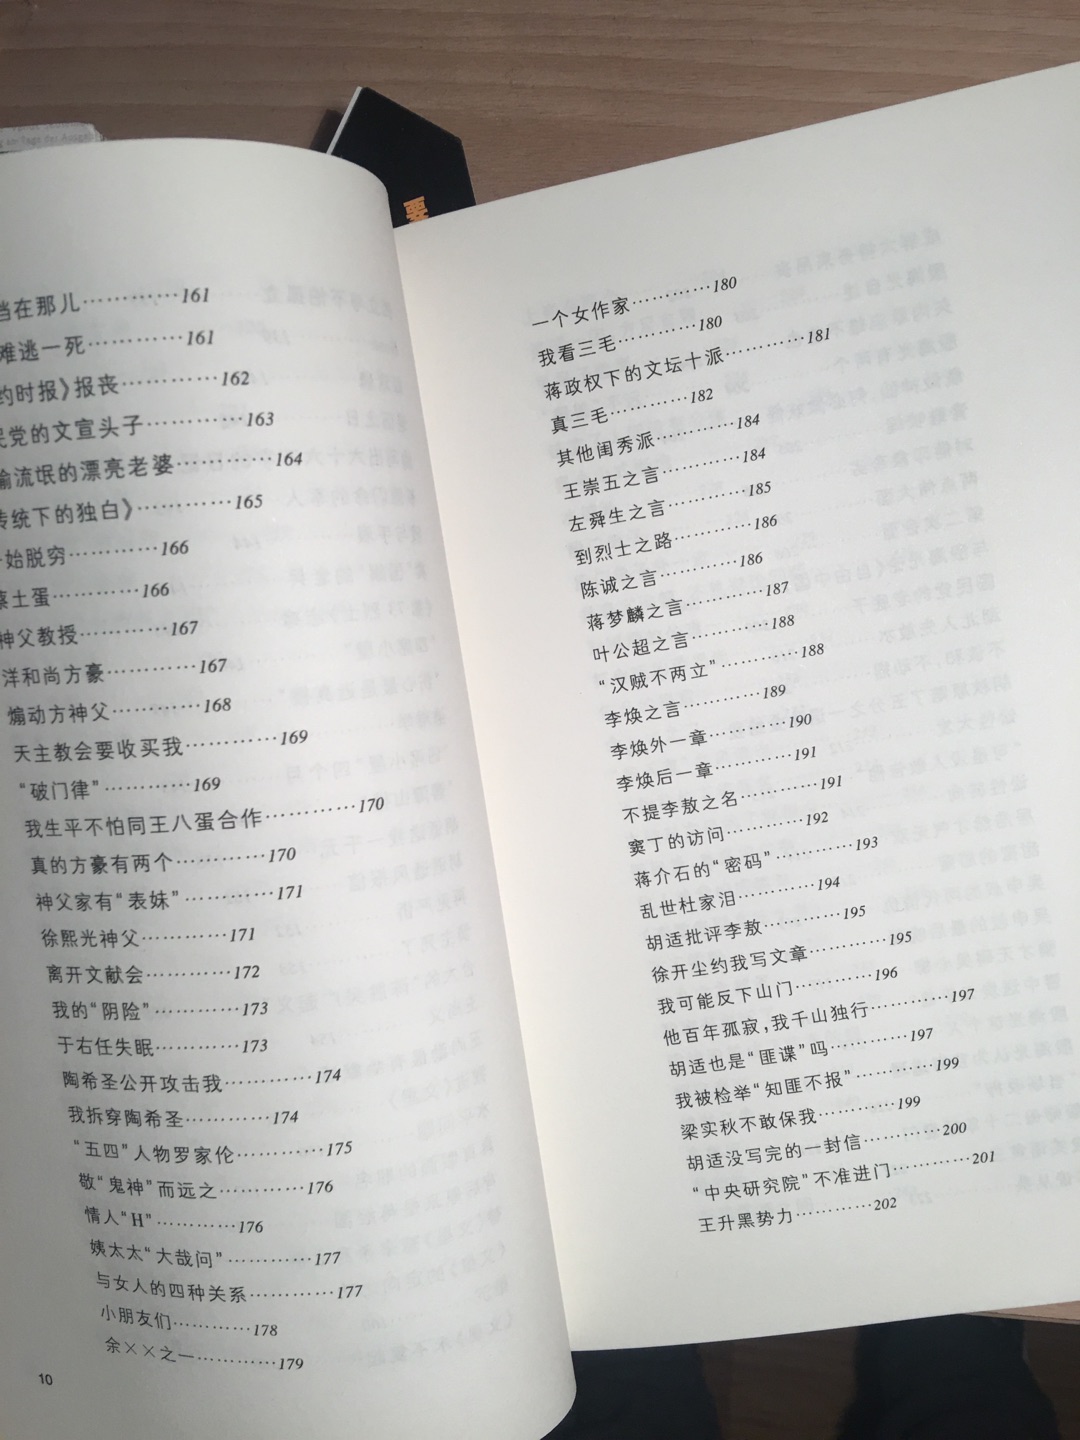 要
当在那儿…………161
难逃一死…………161
约时报》报丧…………162
民党的文宣头子…………163
流氓的漂亮老婆…………164
传统下的独白》…………165
始脱穷…………166
土蛋…………166
神父教授…………167
洋和尚方豪…………167
煽动方神父…………168
天主教会要收买我…………169
“破门律”…………169
我生平不怕同王八蛋合作…………170
真的方豪有两个…………170
神父家有“表妹”…………171
徐熙光神父…………171
离开文献会…………172
我的“阴险”…………173
于右任失眠…………173
陶希圣公开攻击我…………174
我拆穿陶希圣…………174
“五四”人物罗家伦…………175
敬“鬼神”而远之…………176
情人“H”…………176
姨太太“大哉问”…………177
与女人的四种关系…………177
小朋友们…………178
余××之一…………179
10
一个女作家…………180
我看三毛…………180
蒋政权下的文坛十派…………181
真三毛…………182
其他闺秀派…………184
王崇五之言…………184
左舜生之言…………185
到烈士之路…………186
陈诚之言…………186
蒋梦麟之言…………187
叶公超之言…………188
“汉贼不两立”…………188
李焕之言…………189
李焕外一章…………190
李焕后一章…………191
不提李敖之名…………191
窦丁的访问…………192
蒋介石的“密码”…………193
乱世杜家泪…………194
胡适批评李敖…………195
徐开尘约我写文章…………195
我可能反下山门…………196
他百年孤寂,我千山独行…………197
胡适也是“匪谍”吗…………197
我被检举“知匪不报”…………199
梁实秋不敢保我…………199
胡适没写完的一封信…………200
“中央研究院”不准进门…………201
王升黑势力…………202